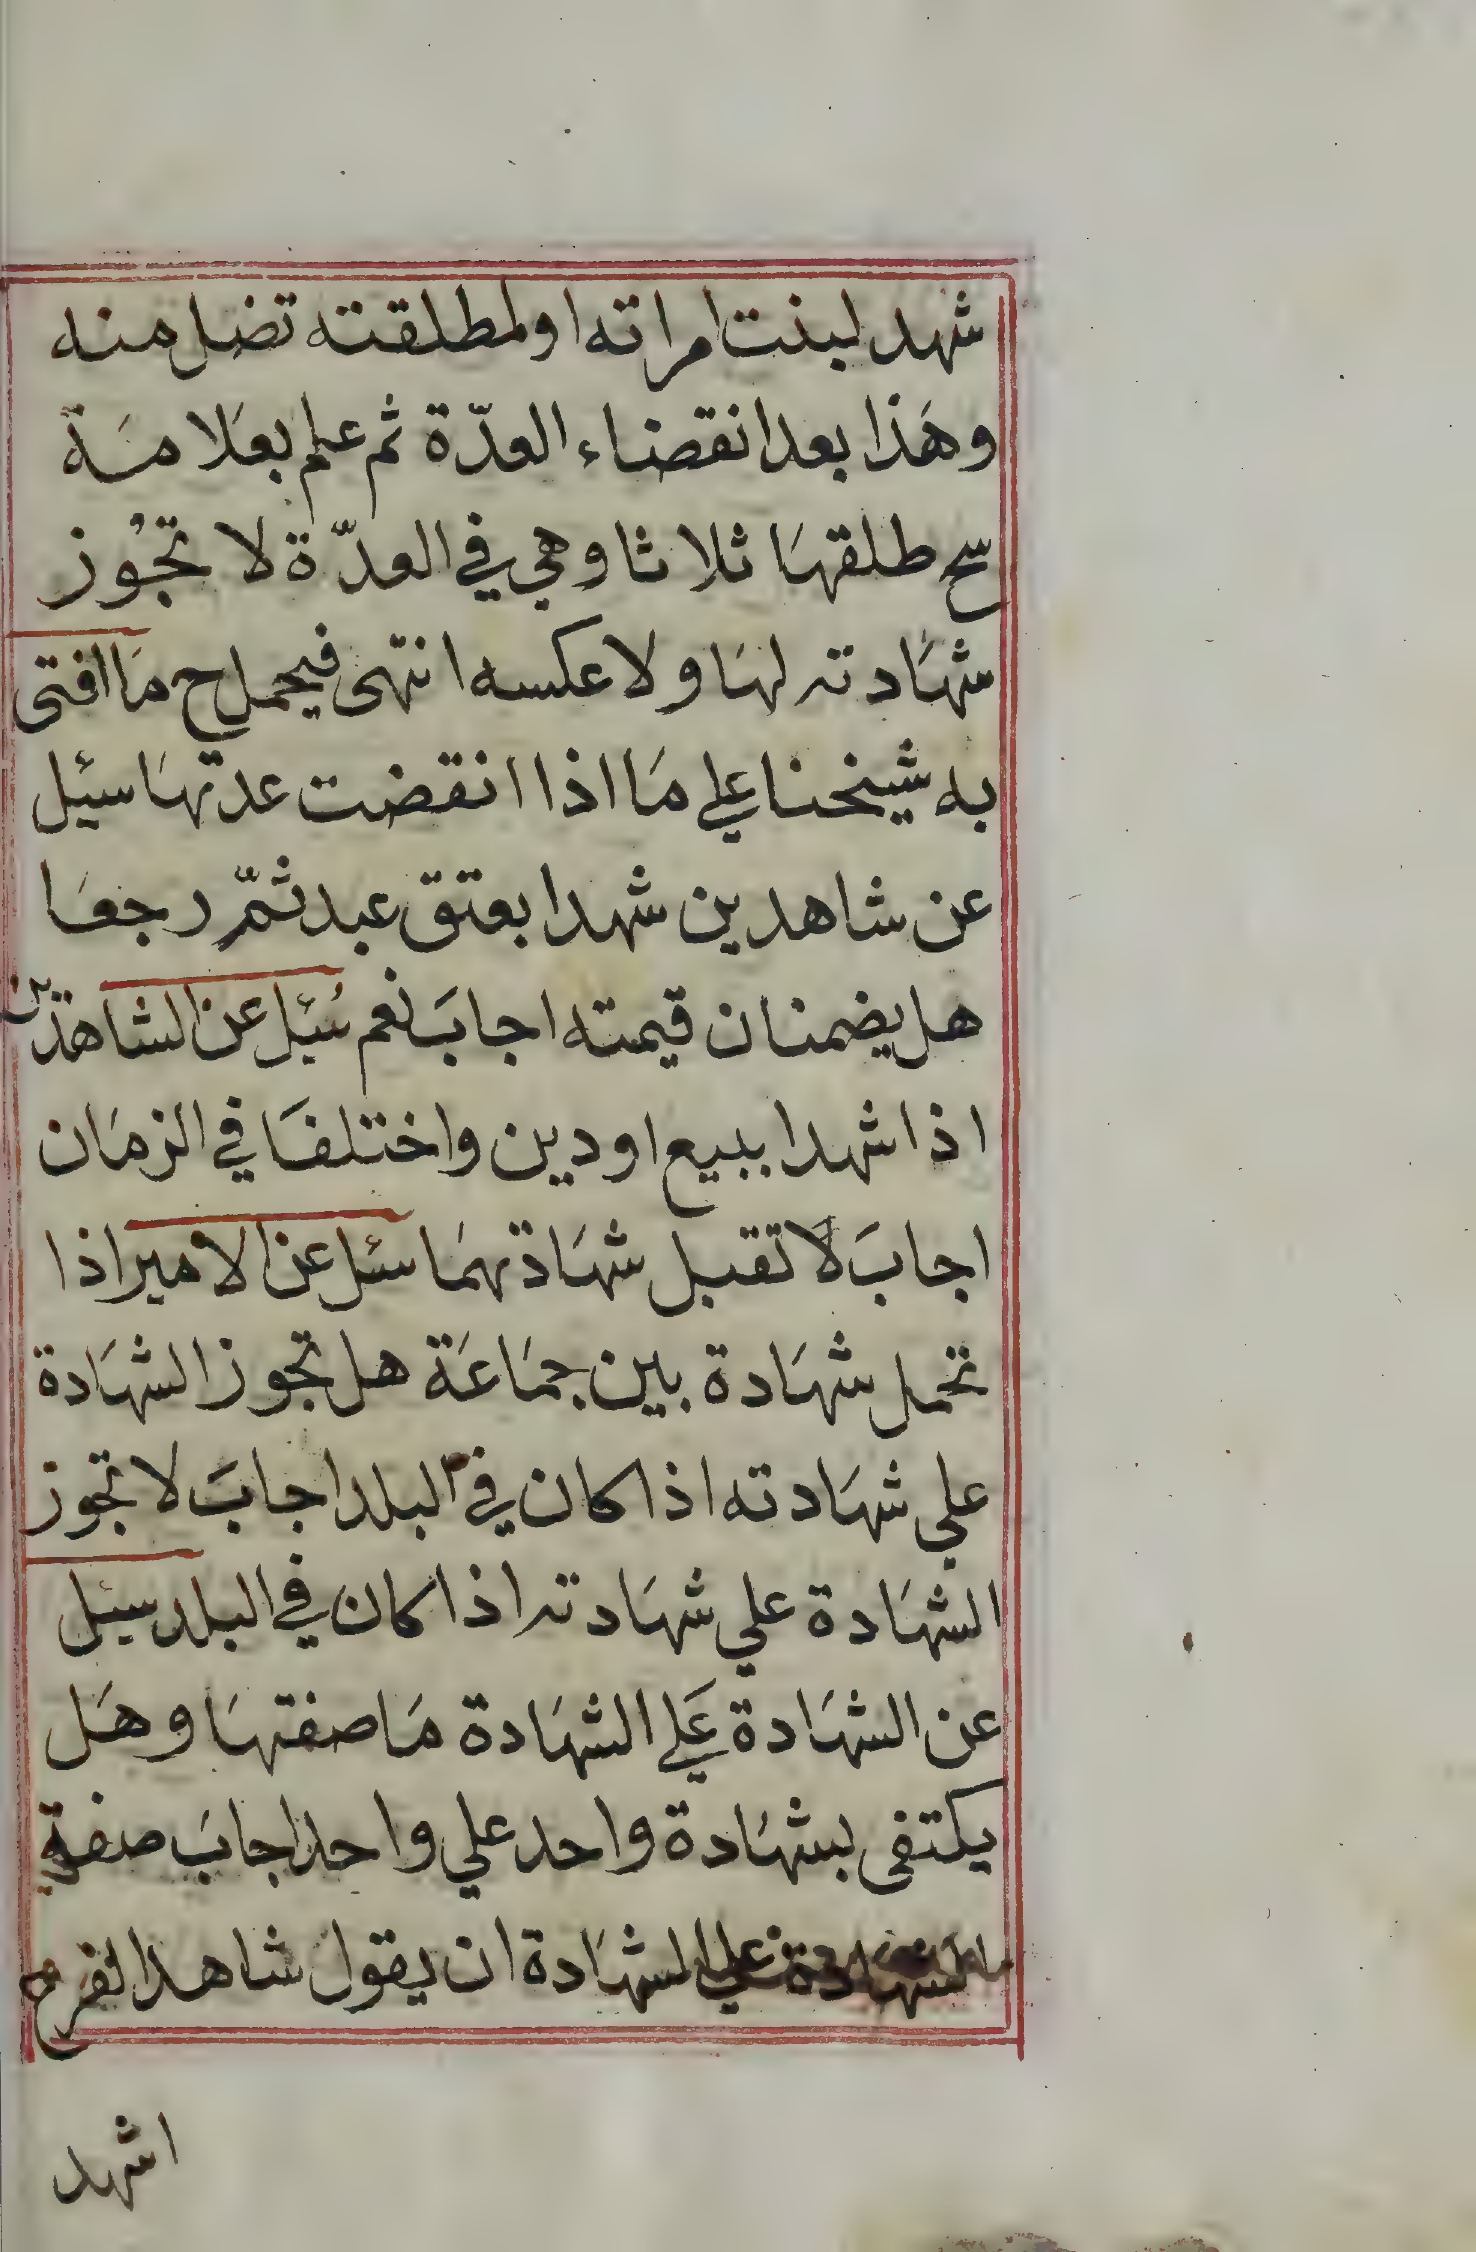 شهد لبنت امراته او لمطلقته تضل منه
وهذا بعد انقضاء العدّة ثم علم بعلامة
سح طلقها ثلاثا وهي في العدّة لا تجُوز
شهادته لها ولا عكسه انتهى فيحمل ح ما افتى
به شيخنا علي ما اذا انقضت عدتها سئل
عن شاهدين شهدا بعتق عبد ثمّ رجعا
هل يضمنان قيمته اجابَ نعم سُئِل عن الشاهدين
اذا شهدا ببيع او دين واختلفا في الزمان
اجابَ لا تقبل شهادتهما سئل عن الامير اذا
تحمل شهادة بين جماعة هل تجوز الشهادة
علي شهادته اذا كان في البلد اجابَ لا تجوز
الشهادة علي شهادته اذا كان في البلد سئل
عن الشهادة علي الشهادة ما صفتها وهل
يكتفى بشهادة واحد علي واحد اجابَ صفة
الشهادة علي الشهادة ان يقول شاهد الفرع
اشهد